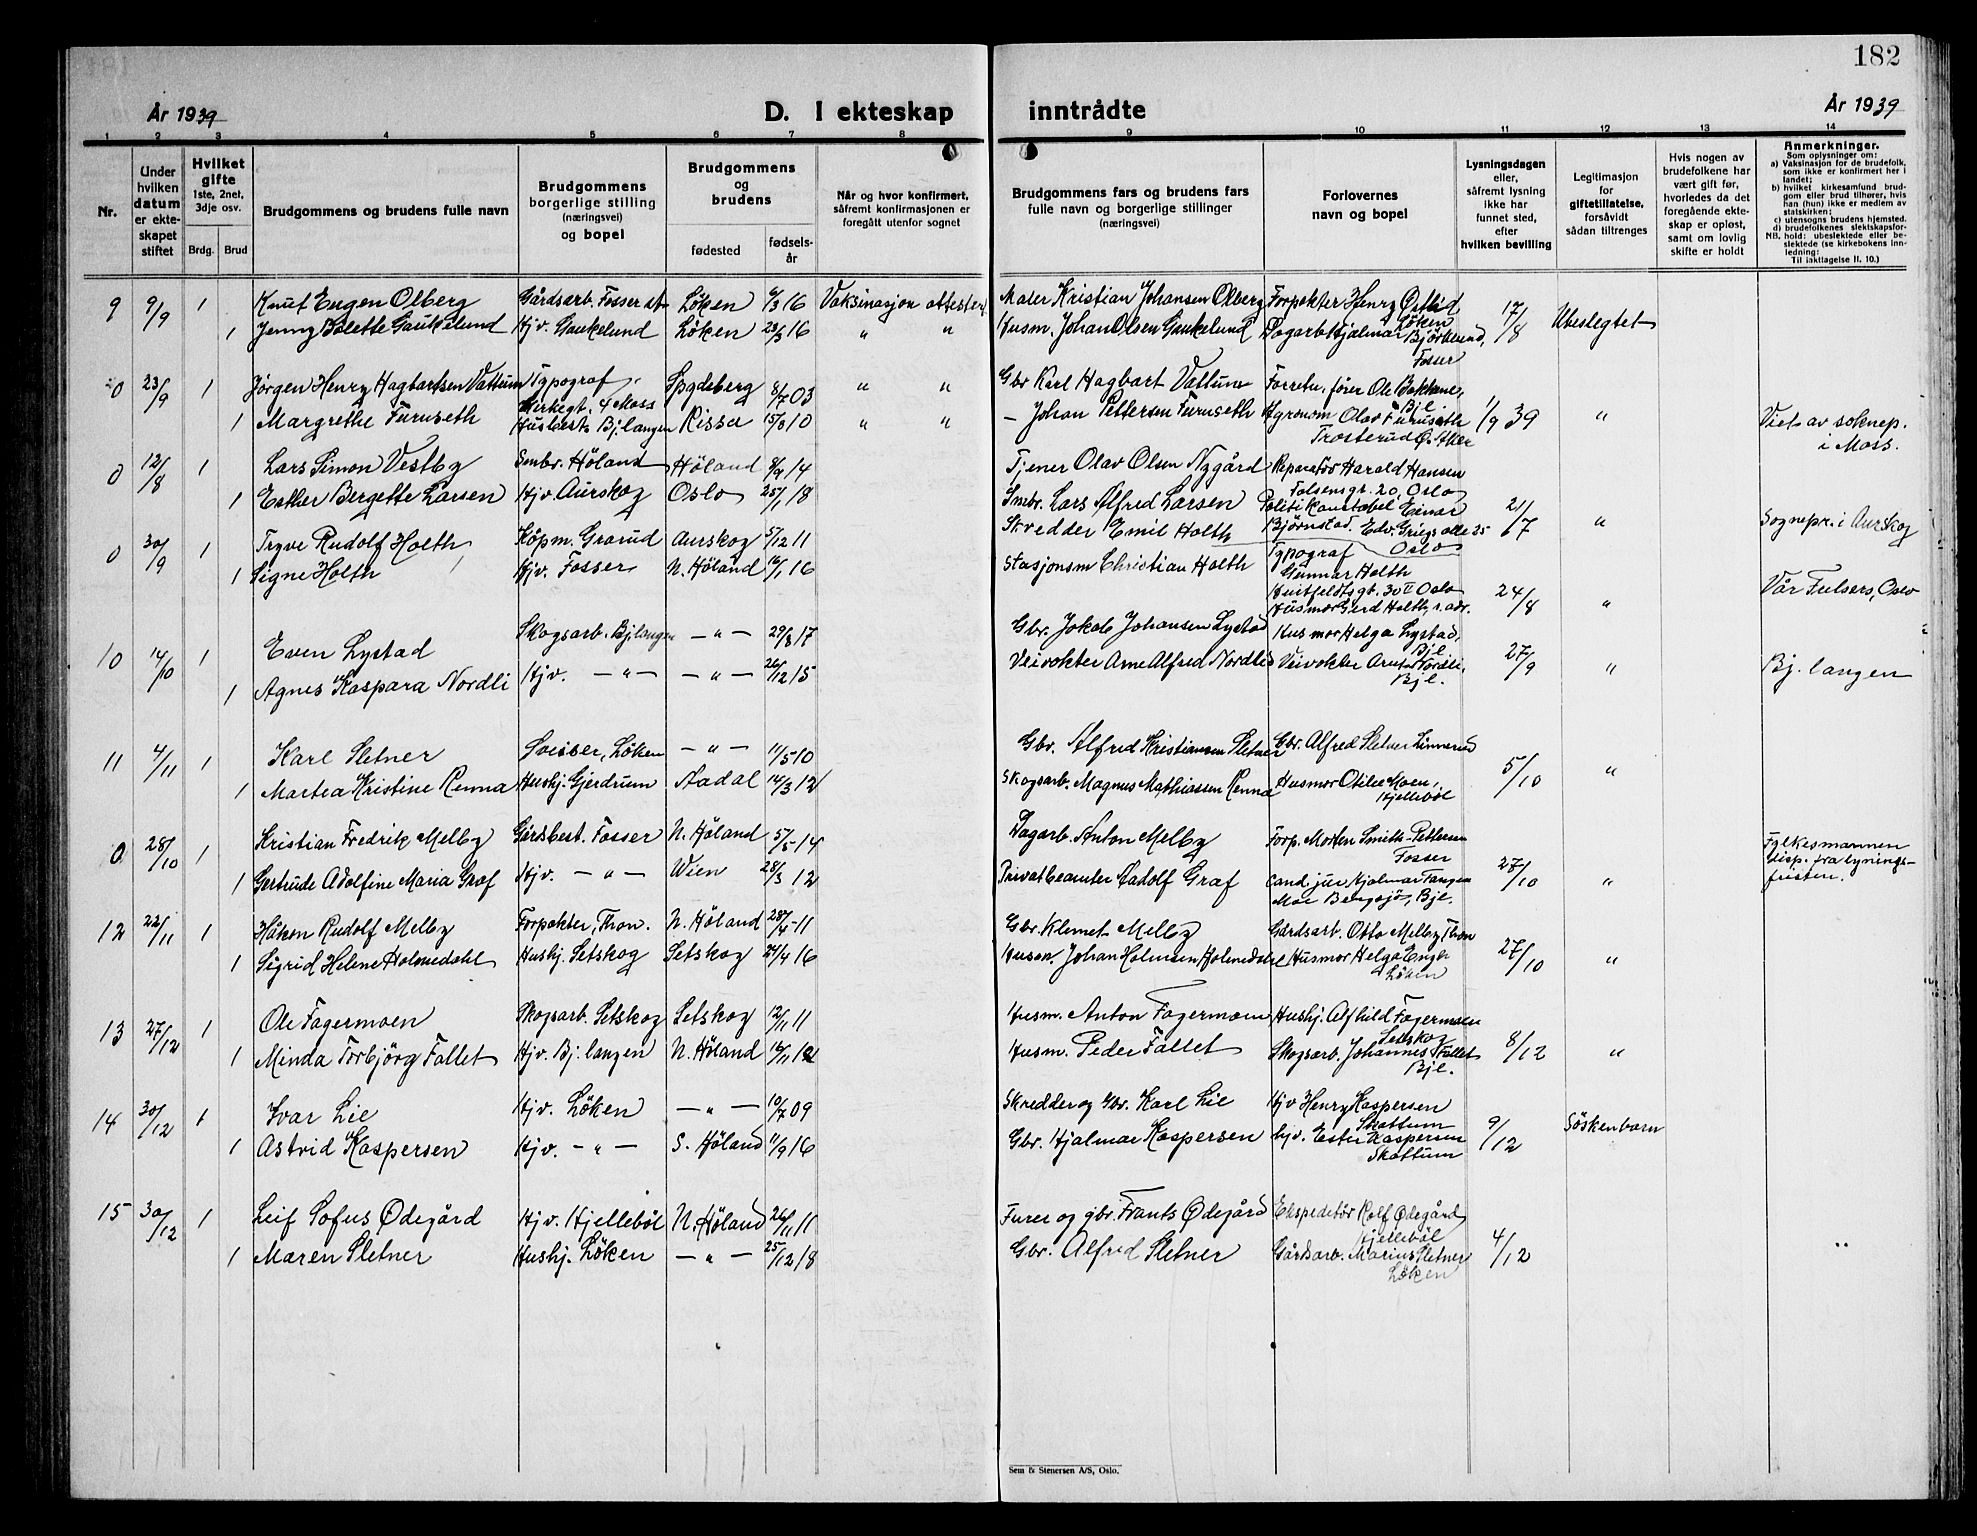 182
År 1939 D. I ekteskap inntrådte År 1939
1 2 3 4 5 6 7 8 9 10 11 12 13 14
Nr.
Under hvilken datum er ekte-skapet stiftet
Hvilket gifte 1ste, 2net, 3dje osv.
Brdg. Brud
Brudgommens og brudens fulle navn
Brudgommens borgerlige stilling (næringsvei) og bopel
Brudgommens og brudens
fødested fødsels-år
Når og hvor konfirmert, såfremt konfirmasjonen er foregått utenfor sognet
Brudgommens fars og brudens fars fulle navn og borgerlige stillinger (næringsvei)
Forlovernes navn og bopel
Lysningsdagen eller, såfremt lysning ikke har funnet sted, efter hvilken bevilling
Legitimasjon for giftetillatelse, forsåvidt sådan tiltrenges
Hvis nogen av brudefolkene har vært gift før, hvorledes da det foregående ekte-skap er opløst, samt om lovlig skifte er holdt
Anmerkninger.
Som oplysninger om:
a) Vaksinasjon for de brudefolk, som ikke er konfirmert her i landet;
b) hvilket kirkesamfund brud-gom eller brud tilhører, hvis han (hun) ikke er medlem av statskirken;
c) utensogns brudens hjemsted.
d) brudefolkenes slektskapsfor-hold: ubeslektede eller be-slektede (se kirkebokens inn-ledning:
NB. Til iakttagelse II. 10.)
9 9/9 1 Knut Eugen Olberg Gårdsarb. Fosser Löken 6/3 16 Vaksinasjon attestert Maler Kristian Johansen Olberg Forpakter Henry Østlid Löken
1 Jenny Bolette Gaukelund Hjv. Gaukelund Löken 23/3 16 " " Husm. Johan Olsen Gaukelund Dagarb. Hjalmar Björkelund, Fosser 17/8 Ubeslegtet
0 23/9 1 Jörgen Henry Hagbartsen Vattum Typograf Kirkegt. 4 Moss Spydeberg 8/7 03 " " Gbr Karl Hagbart Vattum Forretn. förer Ole Bakkene, Bjl.
1 Margrethe Furuseth Husbest. Bj.langen Rissa 15/8 10 " " – Johan Pettersen Furuseth Agronom Olav Furuseth Trosterud Ø. Aker 1/9 39 " Viet av soknep. i Moss.
0 12/8 1 Lars Simon Vestby Smbr. Höland Höland 8/9 14 Tjener Olav Olsen Nygård Reparatör Harald Hansen Falsensgt. 20, Oslo
1 Esther Bergette Larsen Hjv. Aurskog Oslo 25/1 18 Smbr. Lars Alfred Larsen Politikonstabel Einar Björnstad. Edv. Griegs alle 25 Oslo 21/7 " Sognepr. i Aurskog
0 30/9 1 Trygve Rudolf Holth Köpm. Grorud Aurskog 5/12 11 Skredder Emil Holth Typograf Gunnar Holth Huitfeldtsgt. 30 II Oslo
1 Signe Holth Hjv. Fosser N. Höland 16/1 16 Stasjonsm Christian Holth Husmor Gerd Holth, s. adr. 24/8 " Vår Frelsers, Oslo
10 14/10 1 Even Lystad Skogsarb. Bjlangen – " – 29/8 17 Gbr. Jakob Johansen Lystad Husmor Helga Lystad, Bjl.
1 Agnes Kaspara Nordli Hjv. – " – – " – 26/12 15 Veivokter Arne Alfred Nordli Veivokter Arne Nordli, Bjl. 27/9 " Bj. langen
11 4/11 1 Karl Sletner Sveisser, Löken – " – 11/5 10 Gbr. Alfred Kristiansen Sletner Gbr. Alfred Sletner Linnerud
1 Martea Kristine Renna Hushj. Gjerdrum Aadal 14/3 12 Skogsarb. Magnus Mathiassen Renna Husmor Otilie Moen, Hjellebøl 5/10 "
0 28/10 1 Kristian Fredrik Melby Gårdsbest. Fosser N. Höland 5/5 14 Dagarb. Anton Melby Forp. Morten Smith-Pettersen Fosser
1 Gertrude Adolfine Maria Graf Hjv. – " – Wien 28/3 12 Privatbeamter Rudolf Graf cand. jur. Hjalmar Tangen Moe Bergsjö, Bjl. 27/10 " Fylkesmannen disp. fra lysnings-fristen.
12 22/11 1 Håkon Rudolf Melby Forpakter, Thon. N. Höland 28/4 11 Gbr. Klemet Melby Gårdsarb. Otto Melby Thon
1 Sigrid Helene Holmedahl Hushj. Setskog Setskog 24/4 16 Husm. Johan Holmsen Holmedahl Husmor Helga Engh Löken 27/10 "
13 27/12 1 Ole Fagermoen Skogsarb. Setskog Setskog 12/11 11 Husm. Anton Fagermoen Hushj. Alfhild Fagermoen Setskog
1 Minda Torbjörg Fallet Hjv. Bj. langen N. Höland 16/11 12 Husm. Peder Fallet Skogsarb. Johannes Fallet Bjl. 8/12 "
14 30/12 1 Ivar Lie Hjv. Löken – " – 10/7 09 Skredder og gbr. Karl Lie Hjv Henry Kaspersen Skattum
1 Astrid Kaspersen Hjv. – " – S. Höland 11/9 16 Gbr. Hjalmar Kaspersen hjv. Ester Kaspersen Skattum 9/12 Söskenbarn
15 30/12 1 Leif Sofus Ødegård Hjv. Hjellebøl N. Höland 26/11 11 Furer og gbr. Frants Ødegård Ekspeditör Rolf Ødegård Hjellebøl
1 Maren Sletner Hushj. Löken – " – 25/12 18 Gbr. Alfred Sletner Gårdsarb. Marius Sletner Löken 4/12 "
Sem & Stenersen A/S, Oslo.